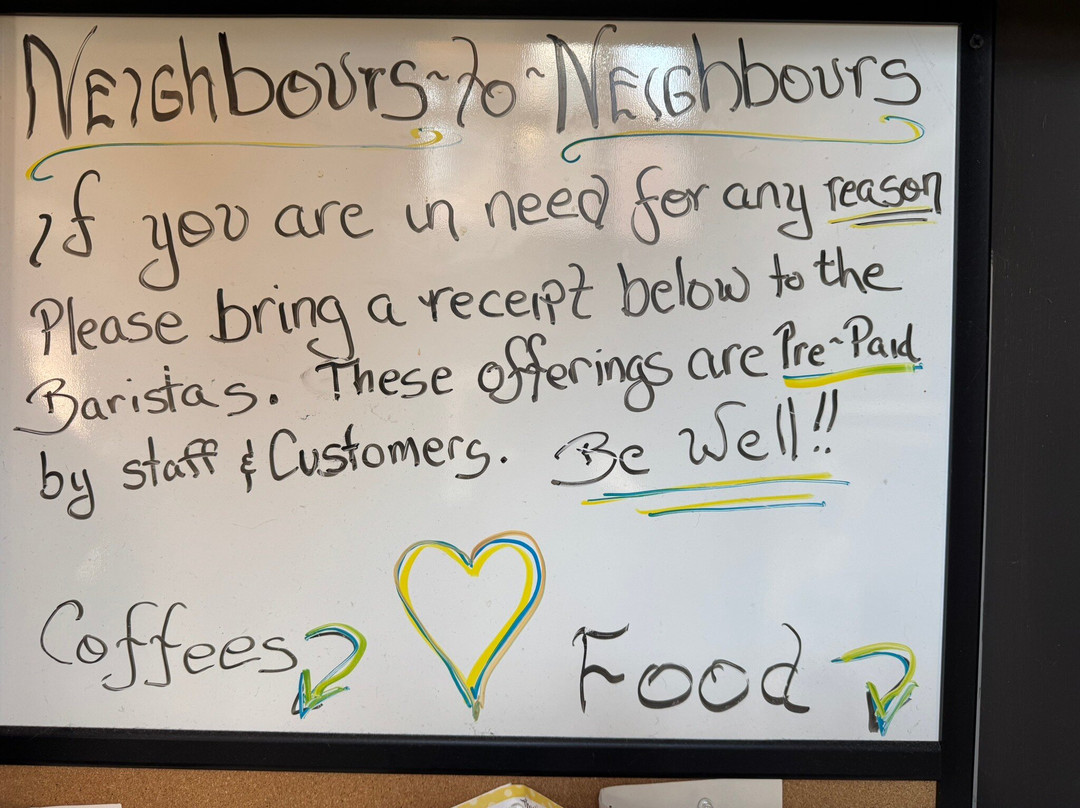 NEIGhbours~to~NEIGhbours
if you are in need for any reason
Please bring a receipt below to the
Barista's. These offerings are Pre~Paid
by staff & Customers. Be Well!!
Coffees Food